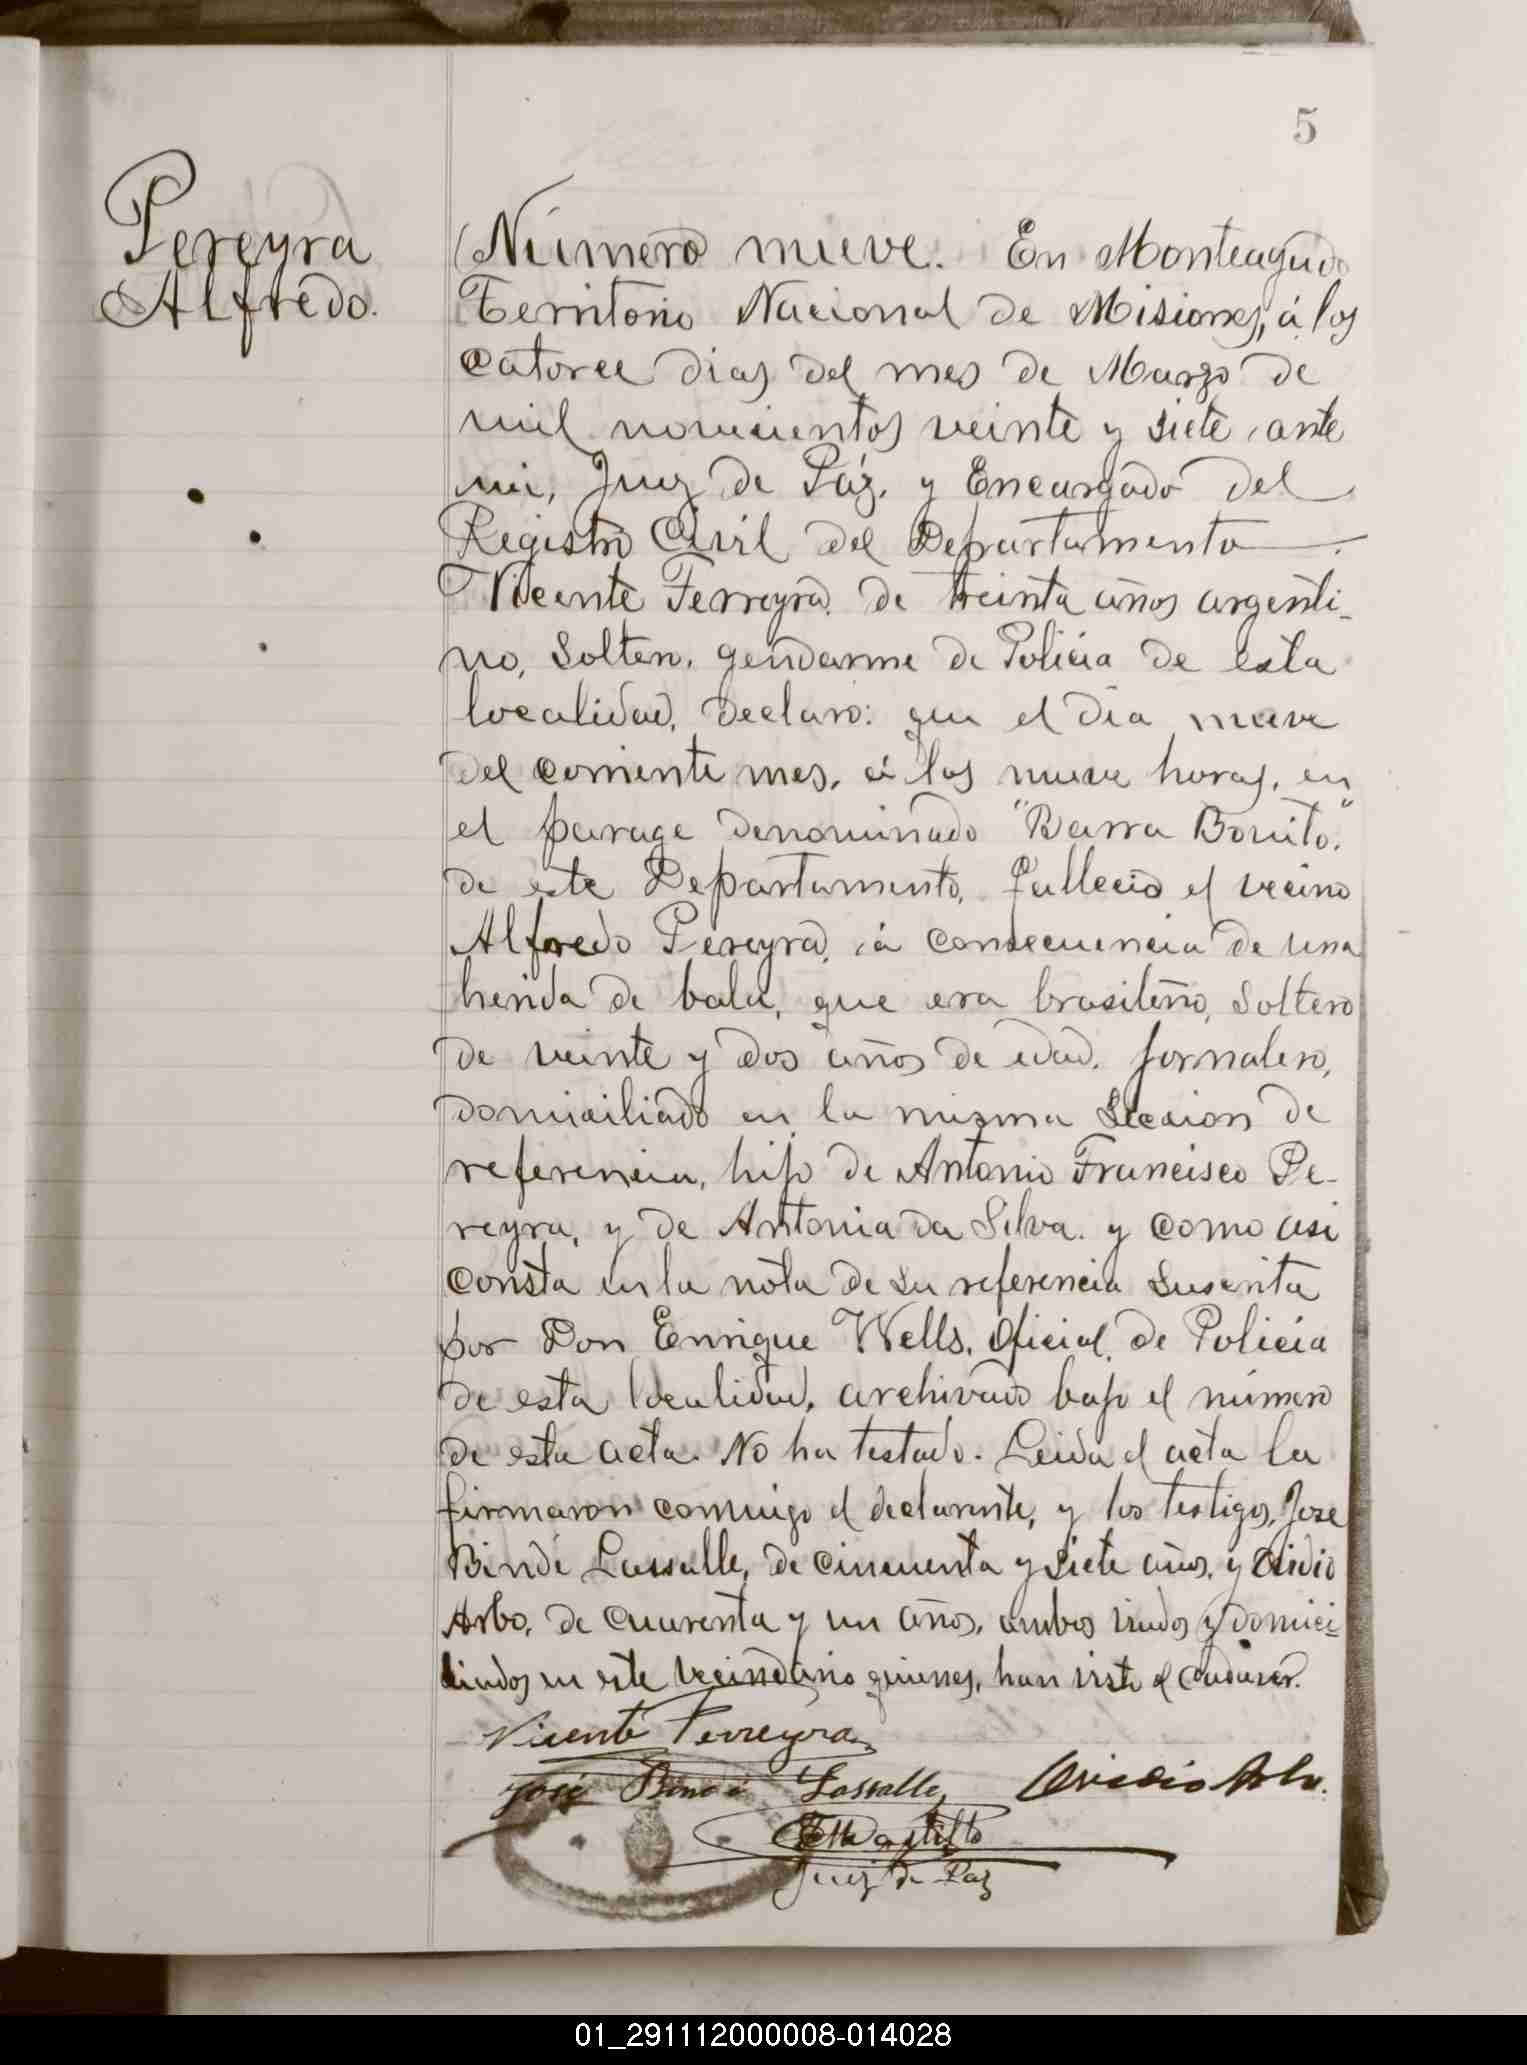 5
Pereyra
Alfredo.
Número nueve. En Monteagudo
Territorio Nacional de Misiones, á los
catorce dias del mes de Marzo de
mil novecientos veinte y siete, ante
mi, Juez de Páz, y Encargado del
Registro Civil del Departamento
Vicente Ferreyra, de treinta años argenti-
no, Soltero, gendarme de Policia de esta
localidad, declaró: que el dia nueve
del corriente mes, á las nueve horas, en
el parage denominado "Barra Bonito,"
de este Departamento, falleció el vecino
Alfredo Pereyra, á consecuencia de una
herida de bala, que era brasileño, Soltero
de veinte y dos años de edad, jornalero,
domiciliado en la misma Sección de
referencia, hijo de Antonio Francisco Pe-
reyra, y de Antonia da Silva. y como asi
consta en la nota de su referencia Suscrita
por Don Enrique Wells, Oficial de Policía
de esta localidad, archivado bajo el número
de esta acta. No ha testado. Leida el acta la
firmaron conmigo el declarante, y los testigos, José
Bindé Lassalle, de cincuenta y siete años, y Ovidio
Arbo, de cuarenta y un años, ambos viudos y domici-
liados en este vecindario quienes, han visto el cadaver.
Vicente Ferreyra
José Bindé Lassalle Ovidio Arbo.
Juez de Paz
01_291112000008-014028